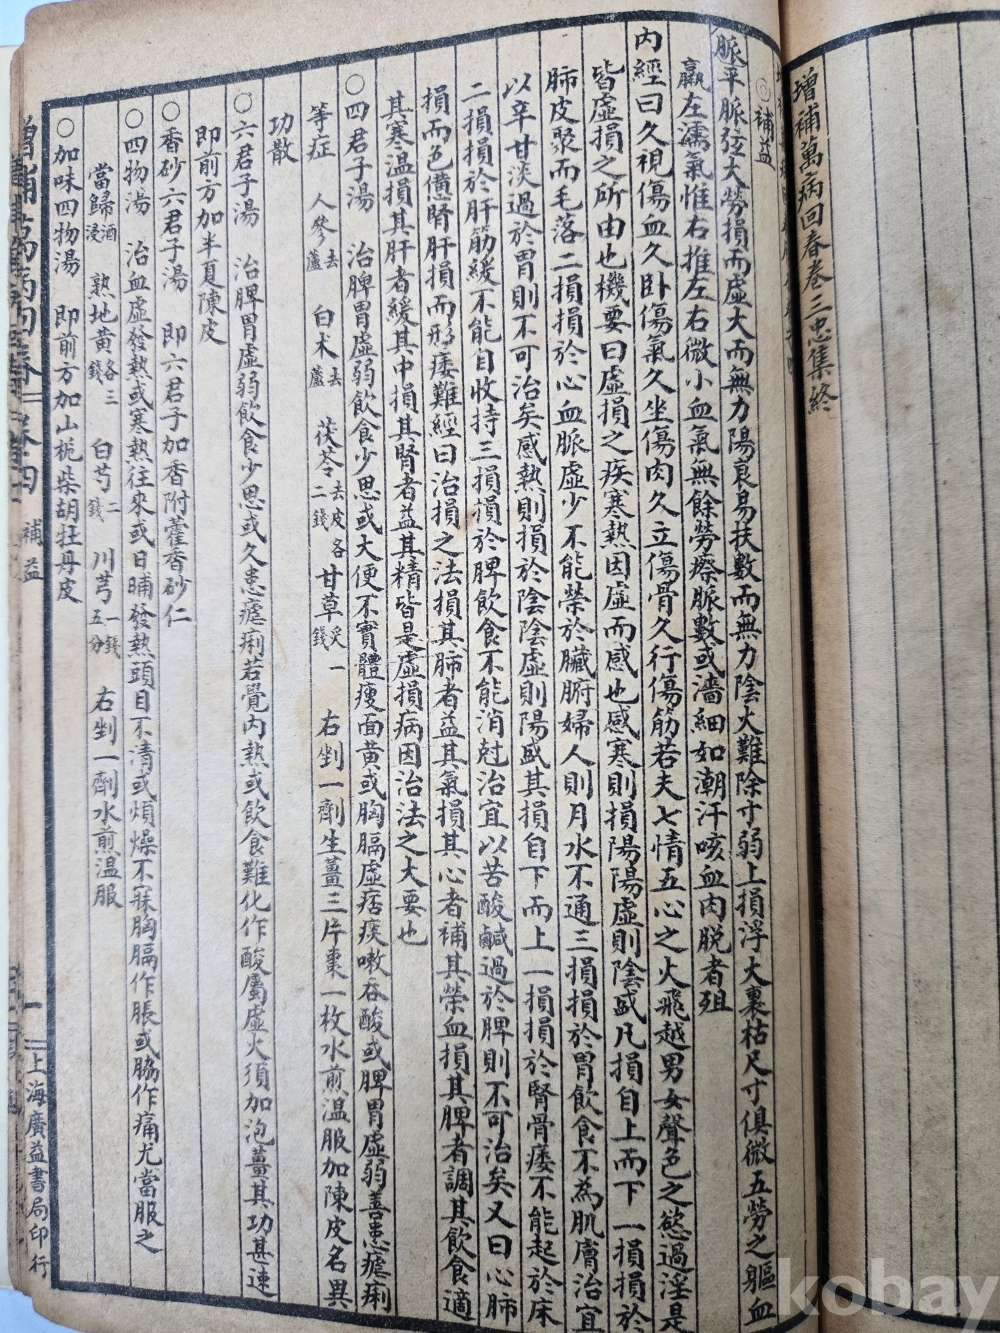 增補萬病回春卷三忠集終
◎補益
脈平脈弦大勞損而虛大而無力陽衰易扶數而無力陰火難除寸弱上損浮大裏枯尺寸俱微五勞之軀血
羸左濡氣惟右推左右微小血氣無餘勞瘵脈數或濇細如潮汗咳血肉脫者殂
內經曰久視傷血久卧傷氣久坐傷肉久立傷骨久行傷筋若夫七情五心之火飛越男女聲色之慾過淫是
皆虛損之所由也機要曰虛損之疾寒熱因虛而感也感寒則損陽陽虛則陰盛凡損自上而下一損損於
肺皮聚而毛落二損損於心血脈虛少不能榮於臟腑婦人則月水不通三損損於胃飲食不為肌膚治宜
以辛甘淡過於胃則不可治矣感熱則損於陰陰虛則陽盛其損自下而上一損損於腎骨痿不能起於床
二損損於肝筋緩不能自收持三損損於脾飲食不能消尅治宜以苦酸鹹過於脾則不可治矣又曰心肺
損而色憊腎肝損而形痿難經曰治損之法損其肺者益其氣損其心者補其榮血損其脾者調其飲食適
其寒溫損其肝者緩其中損其腎者益其精皆是虛損病因治法之大要也
○四君子湯　治脾胃虛弱飲食少思或大便不實體瘦面黄或胸膈虛痞痰嗽吞酸或脾胃虛弱善患瘧痢
等症　人參去蘆　白术去蘆　茯苓去皮各二錢　甘草炙一錢　右剉一劑生薑三片棗一枚水煎溫服加陳皮名異
功散
○六君子湯　治脾胃虛弱飲食少思或久患瘧痢若覺內熱或飲食難化作酸屬虛火須加泡薑其功甚速
即前方加半夏陳皮
○香砂六君子湯　即六君子加香附藿香砂仁
○四物湯　治血虛發熱或寒熱往來或日晡發熱頭目不清或煩燥不寐胸膈作脹或脇作痛尤當服之
當歸酒浸　熟地黃各三錢　白芍二錢　川芎一錢五分　右剉一劑水煎溫服
○加味四物湯　即前方加山梔柴胡牡丹皮
補益
上海廣益書局印行
kobay